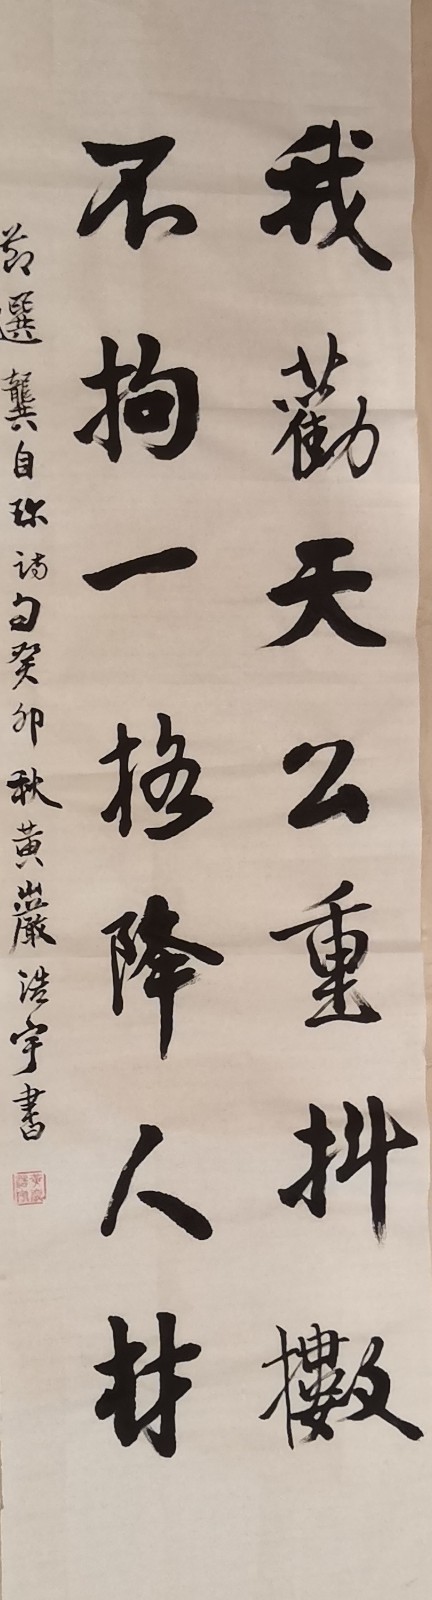 我勸天公重抖擻
不拘一格降人材
節選龔自珍詩句癸卯秋黃巖浩宇書